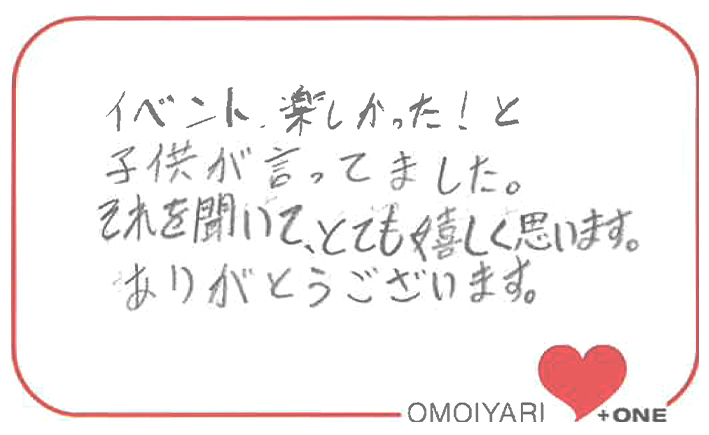 イベント、楽しかった！と
子供が言ってました。
それを聞いて、とても嬉しく思います。
ありがとうございます。
OMOIYARI +ONE